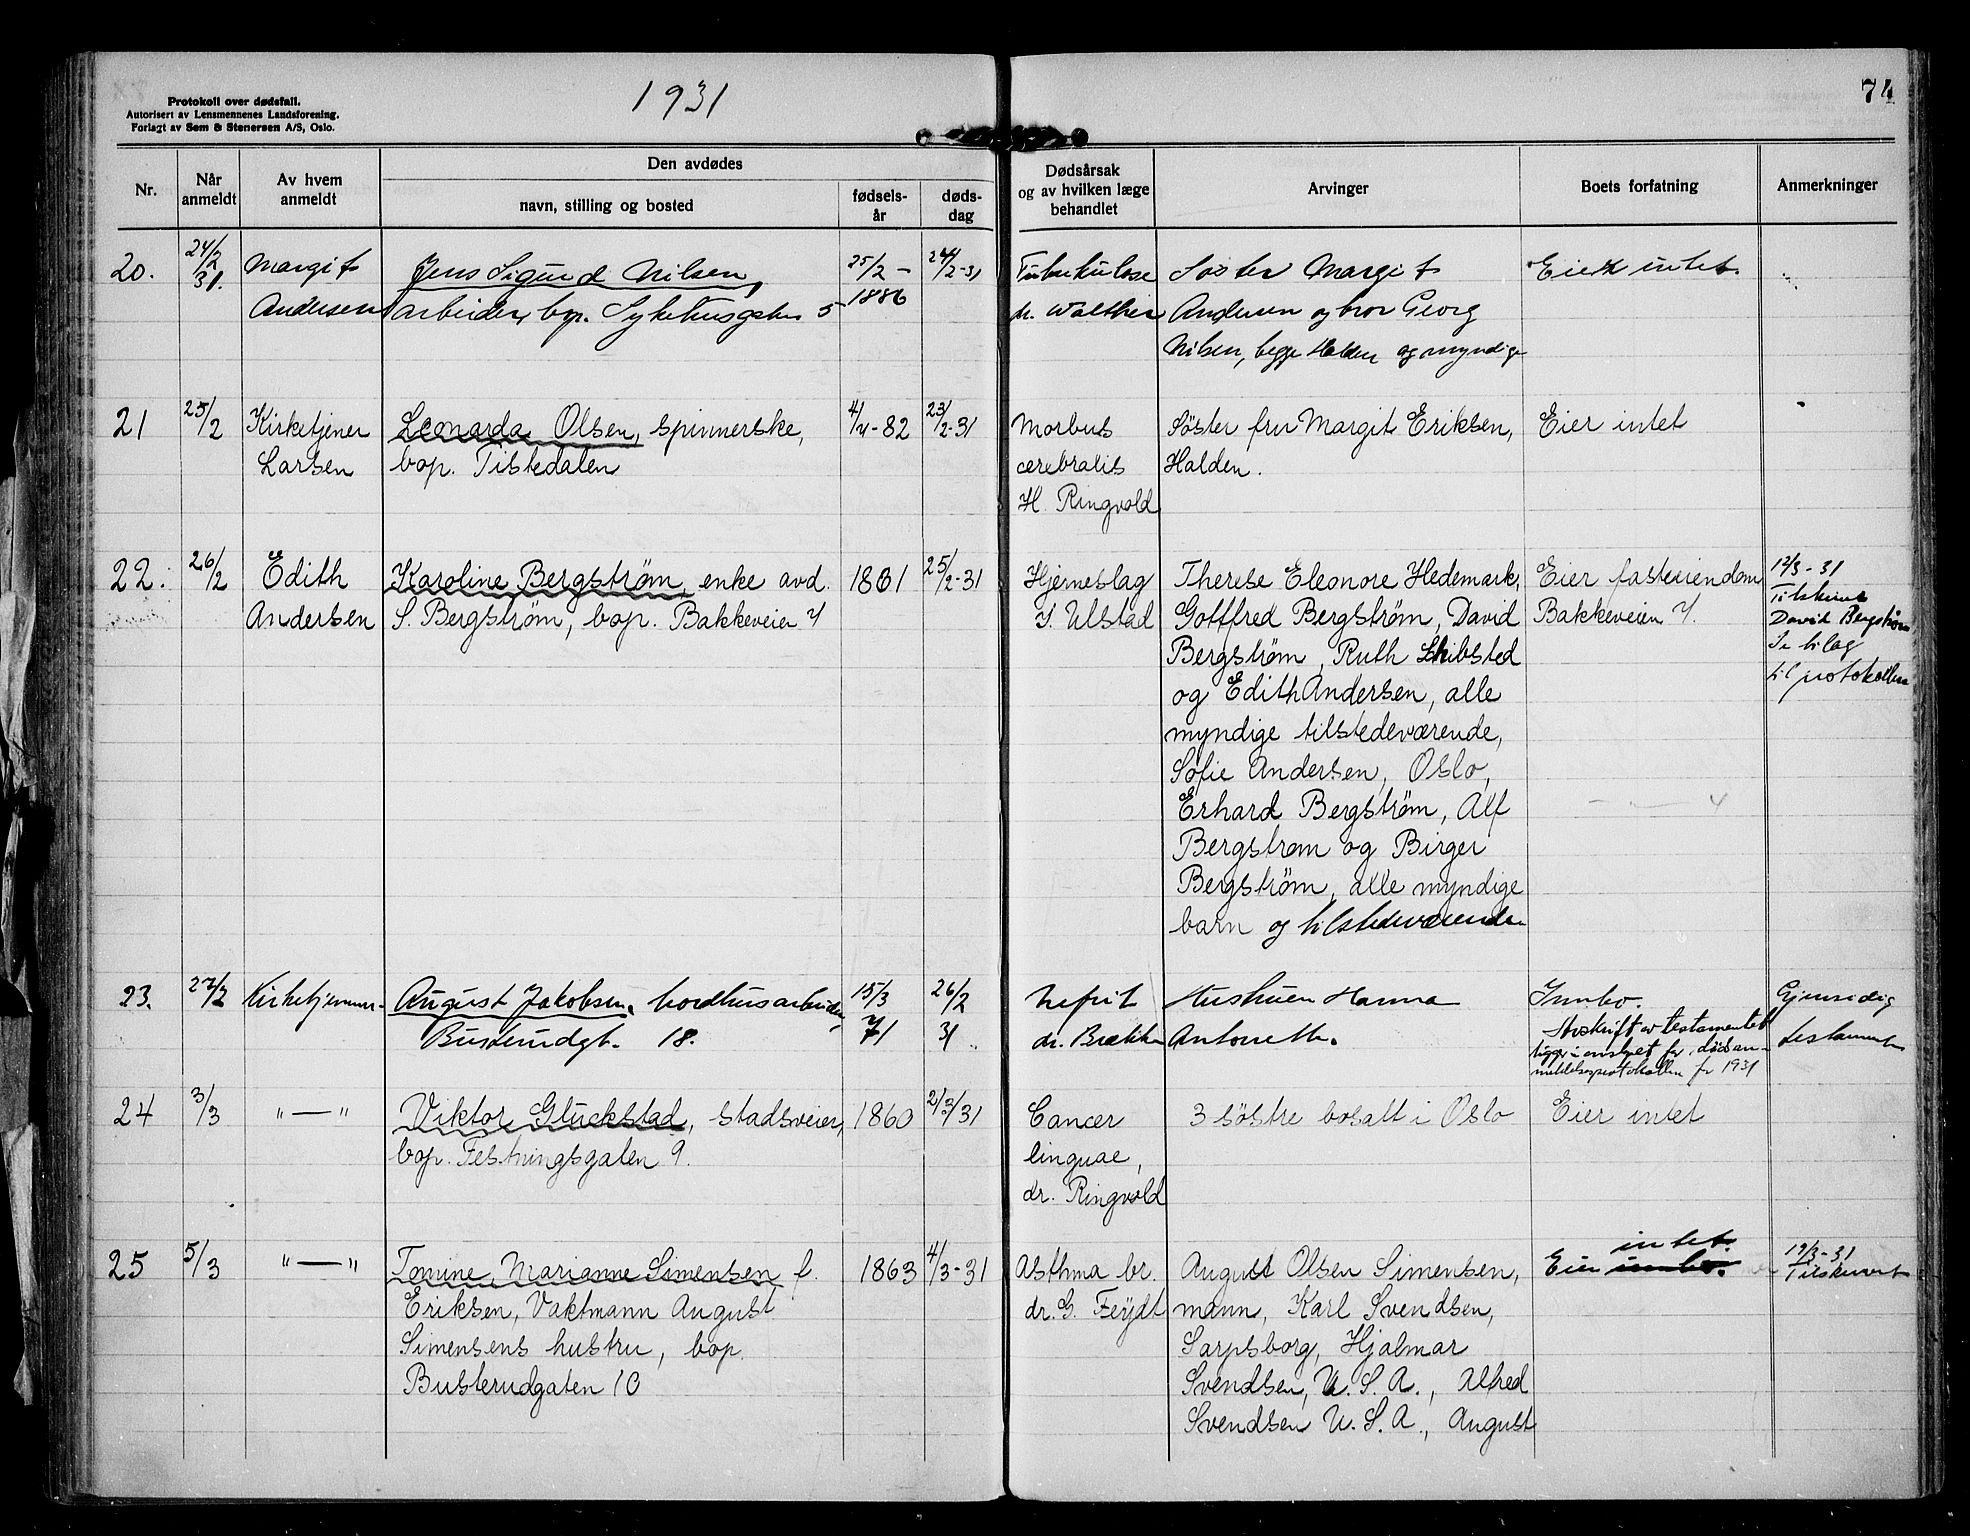 1931
74
Protokoll over dødsfall.
Autorisert av Lensmennenes Landsforening.
Forlagt av Sem & Stenersen A/S, Oslo.
Nr.
Når anmeldt
Av hvem anmeldt
Den avdødes
navn, stilling og bosted
fødsels-år
døds-dag
Dødsårsak og av hvilken læge behandlet
Arvinger
Boets forfatning
Anmerkninger
20.
24/2 31.
Margit
Andersen
Jens Sigurd Nilsen,
arbeider, bop. Sykehusgaten 5
25/2 -
1886
24/2-31
Tuberkulose
dr. Walther
Søster Margit
Andersen og bror Georg
Nilsen, begge Halden og myndige
Eier intet.
21
25/2
Kirketjener
Larsen
Leonarda Olsen, spinnerske,
bop. Tistedalen
4/4-82
23/2-31
Morbus
cerebralis
H. Ringvold
Søster fru Margit Eriksen,
Halden.
Eier intet
22.
26/2
Edith
Andersen
Karoline Bergstrøm, enke avd.
S. Bergstrøm, bop. Bakkeveien 4
1861
25/2-31
Hjerneslag
J. Ulstad
Therese Eleonore Hedemark,
Gottfred Bergstrøm, David
Bergstrøm, Ruth Schibsted
og Edith Andersen, alle
myndige tilstedeværende,
Sofie Andersen, Oslo,
Erhard Bergstrøm, Alf
Bergstrøm og Birger
Bergstrøm, alle myndige
barn og tilstedeværende
Eier fasteiendom
Bakkeveien 4.
12/3-31
Tilskrevet
David Bergstrøm
Se bilag
til protokollen
23.
27/2
Kirketjeneren
August Jakobsen, bordhusarbeider,
Busterudgt. 18.
15/3
71
26/2
31
Nefrit
dr. Brække
Hustruen Hanna
Antonette.
Innbo.
Avskrift av testamentet
ligger i omslaget for dødsan-
meldelsesprotokollen for 1931
Gjensidig
testamente
24
3/3
"—"
Viktor Gluckstad, stadsveier,
bop. Festningsgaten 9.
1860
2/3/31
Cancer
linguae,
dr. Ringvold
3 søstre bosatt i Oslo
Eier intet
25
5/3
"—"
Tomine Marianne Simensen f.
Eriksen, Vaktmann August
Simensens hustru, bop.
Busterudgaten 10
1863
4/3-31
Asthma br.
dr. G. Feydt
August Olsen Simensen,
mann, Karl Svendsen,
Sarpsborg, Hjalmar
Svendsen, U.S.A., Alfred
Svendsen U.S.A., August
intet.
Eier innbo.
19/3-31
Tilskrevet